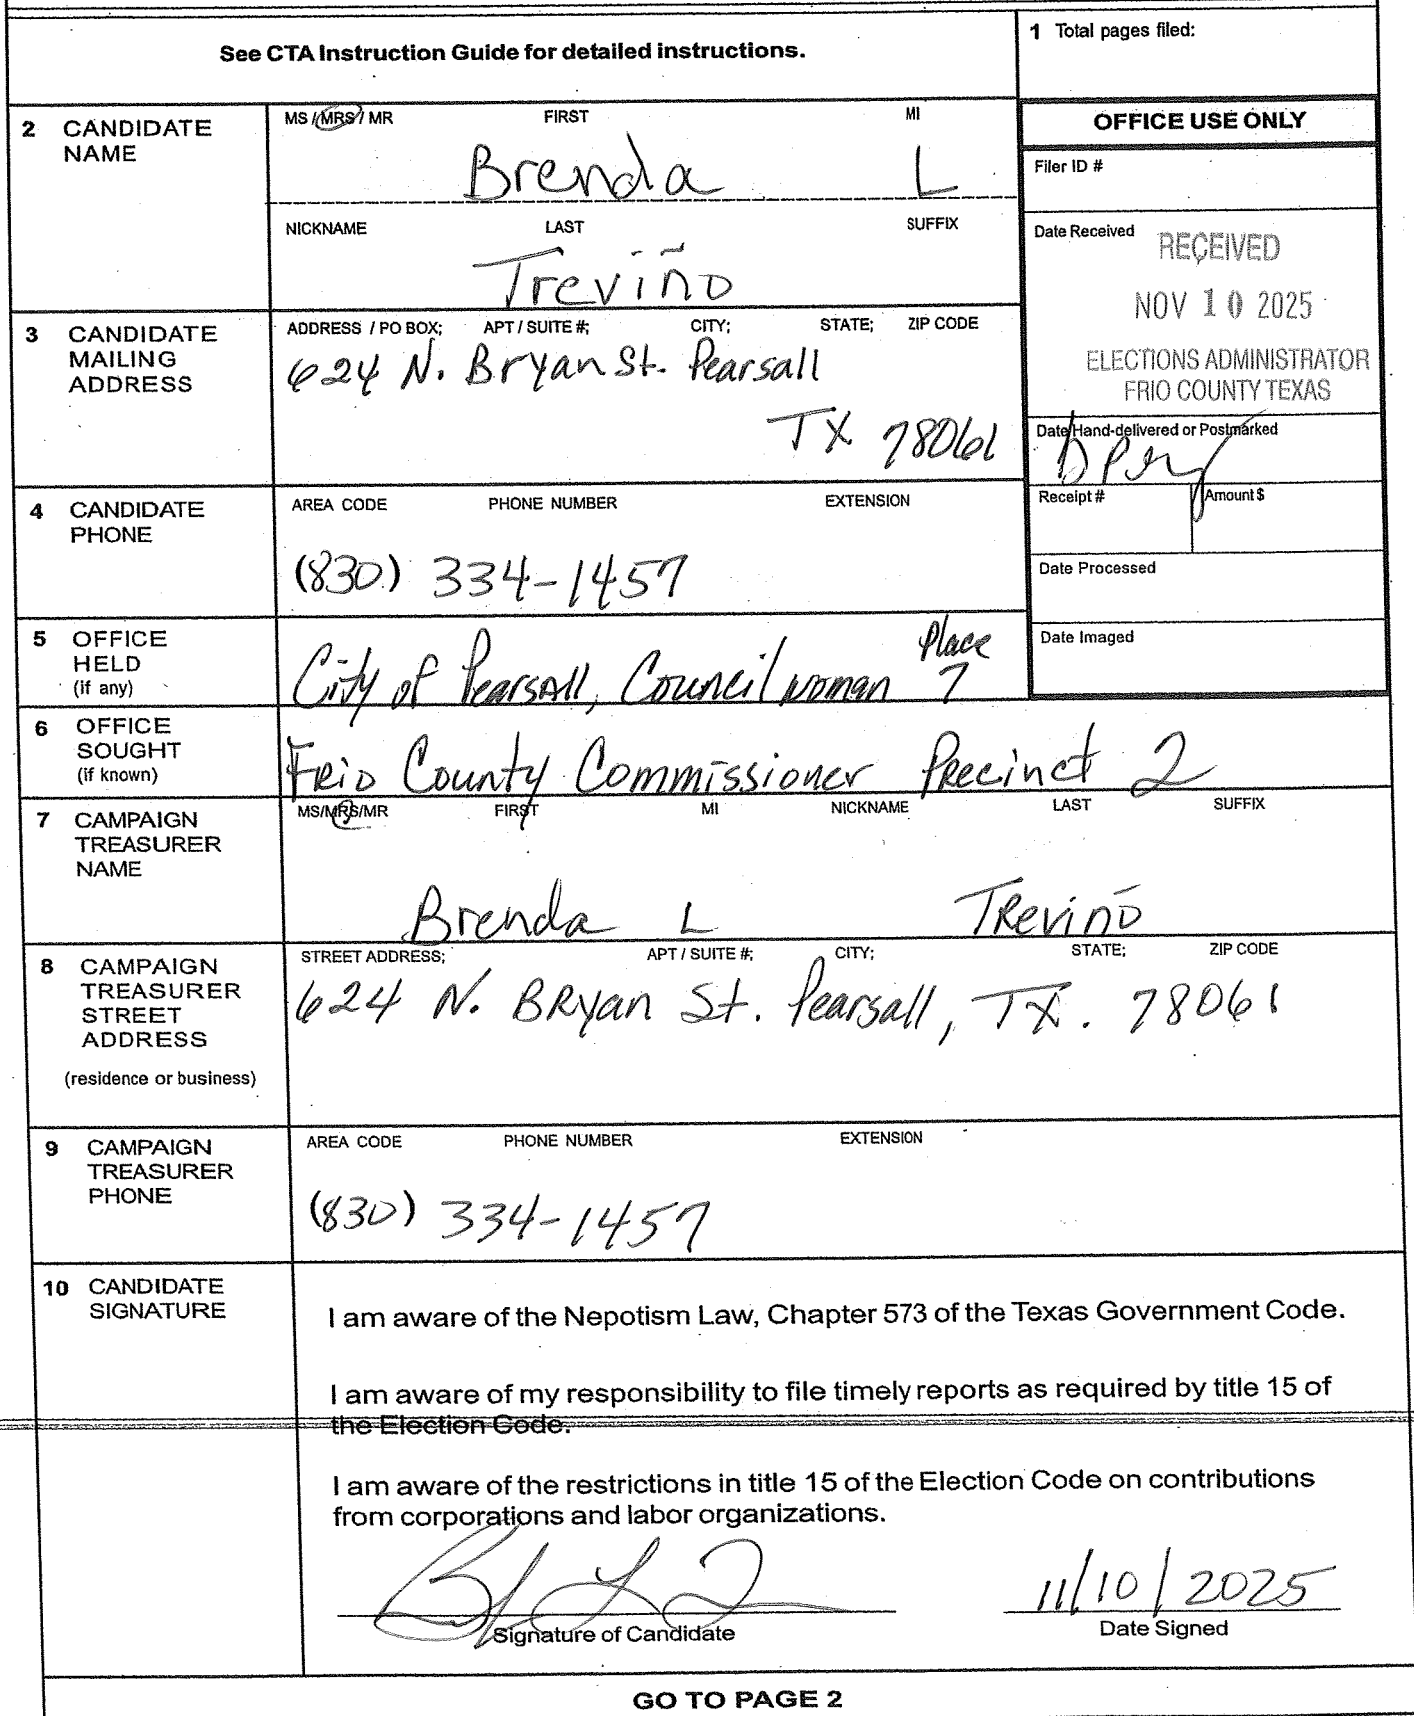 See CTA Instruction Guide for detailed instructions.
1 Total pages filed:
2 CANDIDATE NAME
MS / MRS / MR FIRST MI
Brenda L
NICKNAME LAST SUFFIX
Treviño
OFFICE USE ONLY
Filer ID #
Date Received
RECEIVED
NOV 10 2025
ELECTIONS ADMINISTRATOR
FRIO COUNTY TEXAS
Date Hand-delivered or Postmarked
Receipt # Amount $
Date Processed
Date Imaged
3 CANDIDATE MAILING ADDRESS
ADDRESS / PO BOX; APT / SUITE #; CITY; STATE; ZIP CODE
624 N. Bryan St. Pearsall
TX 78061
4 CANDIDATE PHONE
AREA CODE PHONE NUMBER EXTENSION
(830) 334-1457
5 OFFICE HELD (if any)
City of Pearsall, Councilwoman Place 7
6 OFFICE SOUGHT (if known)
Frio County Commissioner Precinct 2
7 CAMPAIGN TREASURER NAME
MS/MRS/MR FIRST MI NICKNAME LAST SUFFIX
Brenda L Treviño
8 CAMPAIGN TREASURER STREET ADDRESS
(residence or business)
STREET ADDRESS; APT / SUITE #; CITY; STATE; ZIP CODE
624 N. BRyan St. Pearsall, TX. 78061
9 CAMPAIGN TREASURER PHONE
AREA CODE PHONE NUMBER EXTENSION
(830) 334-1457
10 CANDIDATE SIGNATURE
I am aware of the Nepotism Law, Chapter 573 of the Texas Government Code.
I am aware of my responsibility to file timely reports as required by title 15 of
the Election Code.
I am aware of the restrictions in title 15 of the Election Code on contributions
from corporations and labor organizations.
11/10/2025
Signature of Candidate Date Signed
GO TO PAGE 2